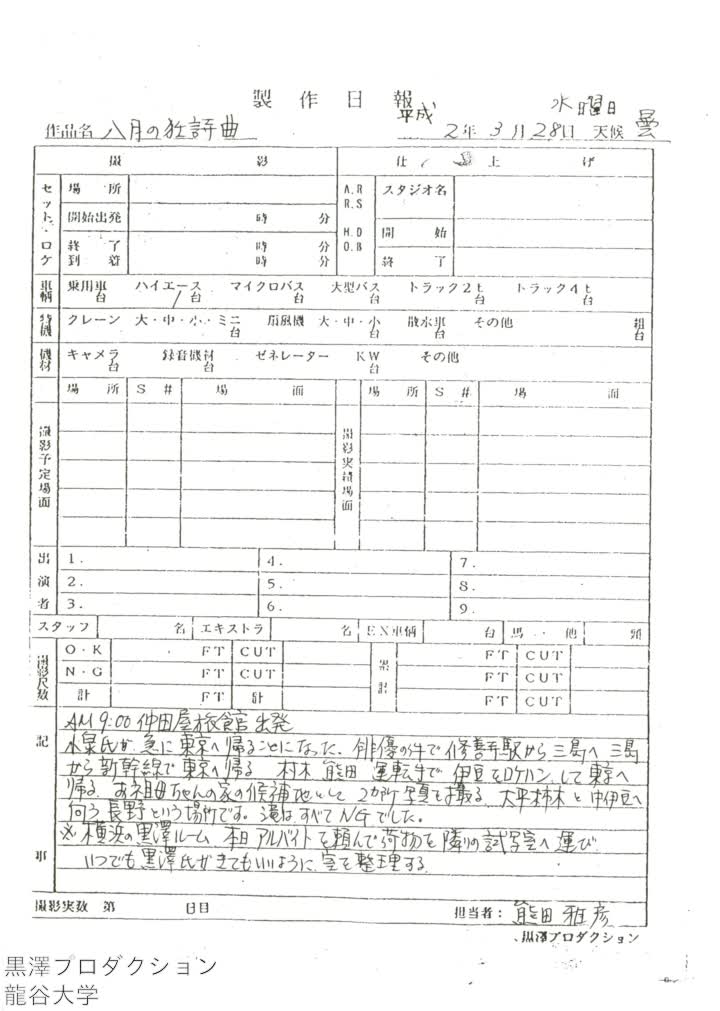 製作日報
水曜日
作品名 八月の狂詩曲 平成 2年 3月 28日 天候 曇
撮影 仕上げ
セット・ロケ 場所 A.R R.S スタジオ名
開始出発 時 分 H.D O.B 開始
終了 時 分 終了
到着 時 分
車輌 乗用車 台 ハイエース 1台 マイクロバス 台 大型バス 台 トラック2t 台 トラック4t 台
特機 クレーン 大・中・小・ミニ 台 扇風機 大・中・小 台 散水車 台 その他 組 台
機材 キャメラ 台 録音機材 台 ゼネレーター KW 台 その他
撮影予定場面 場所 S # 場面 撮影実績場面 場所 S # 場面
出演者 1. 4. 7.
2. 5. 8.
3. 6. 9.
スタッフ 名 エキストラ 名 EX車輌 台 馬・他 頭
撮影尺数 O・K FT CUT 累計 FT CUT
N・G FT CUT FT CUT
計 FT 計 FT CUT
記事
AM 9:00 仲田屋旅館 出発
水泉氏が急に東京へ帰ることになった、俳優の件で修善寺駅から三島へ 三島
から新幹線で東京へ帰る 村木 熊田 運転手で 伊豆をロケハンして東京へ
帰る。お祖母ちゃんの家の候補地として 2か所 写真を撮る。大平柿木と中伊豆へ
向う長野という場所です。滝はすべてNGでした。
※横浜の黒澤ルーム 本日 アルバイトを頼んで荷物を隣りの試写室へ運び
いつでも黒澤氏がきてもいいように 室を整理する。
撮影実数 第 日目 担当者: 熊田 雅彦
黒澤プロダクション
黒澤プロダクション
龍谷大学